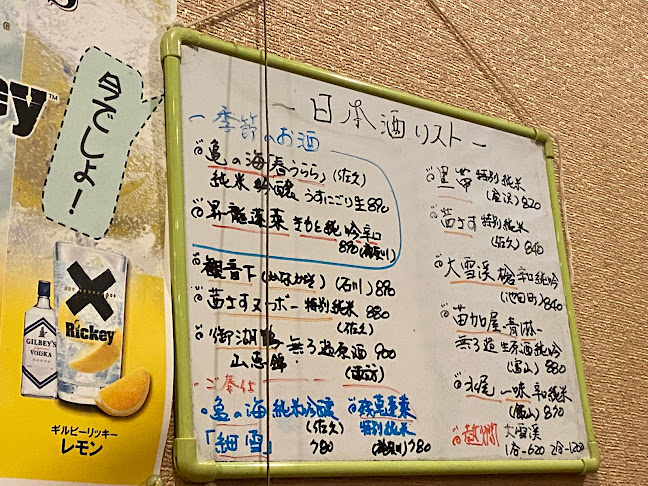 ey™
今でしょ！
Rickey
GILBEY'S
VODKA
ギルビーリッキー
レモン
ー日本酒リストー
ー季節のお酒
亀の海「春うらら」(佐久)
純米吟醸 うすにごり生 890
昇龍蓬莱 きもと純吟辛口
890 (神奈川)
観音下 (かながそ) (石川) 890
茜さすヌーボー 特別純米 880
(佐久)
御湖鶴 無ろ過原酒 900
山恵錦 (諏訪)
ご奉仕
亀の海 純米吟醸
(佐久)
「細雪」 780
残草蓬莱
特別純米
(神奈川) 780
黒帯 特別純米
(金沢) 820
茜さす 特別純米
(佐久) 840
大雪渓 槍 辛口純吟
(池田町) 840
苗加屋 青淋
無ろ過生原酒純吟
(富山) 880
水尾 一味 辛口純米
(飯山) 870
熱燗 大雪渓
1合-620 2合-1200